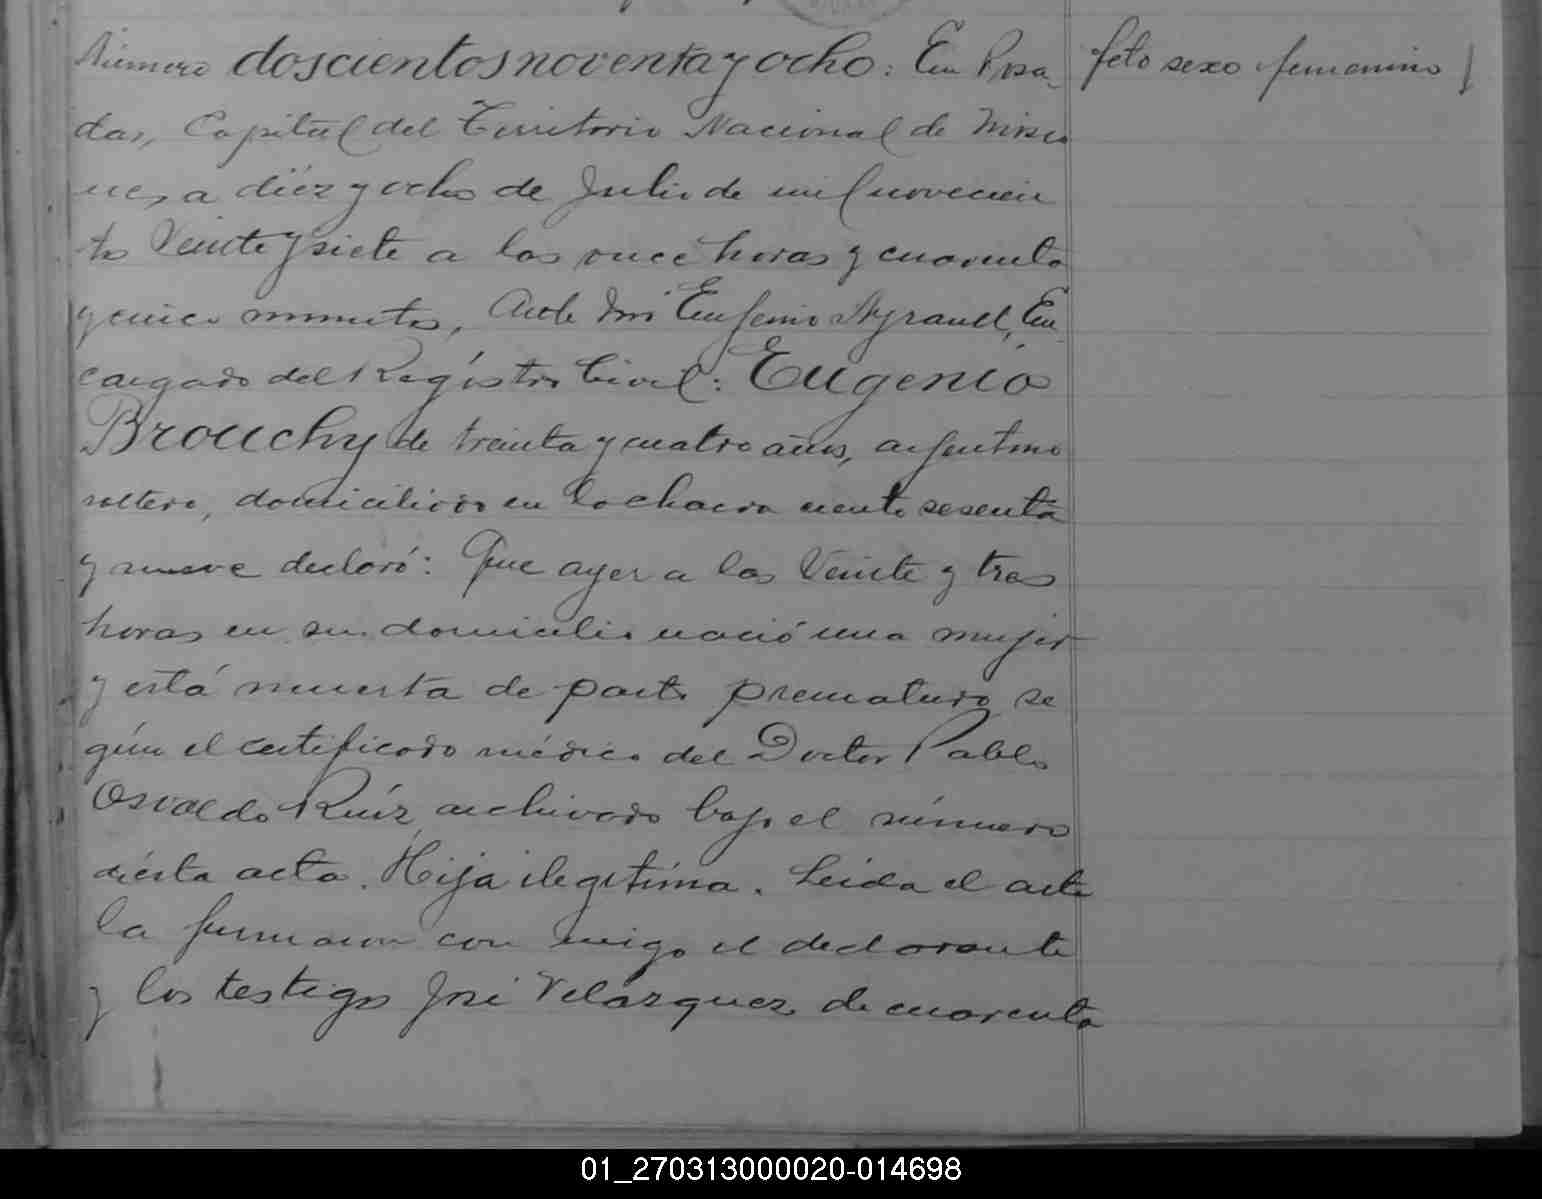 Número doscientos noventa y ocho: En Posa-
das, Capital del Territorio Nacional de Misio
nes, a diéz y ocho de Julio de mil novecien
tos veinte y siete a las once horas y cuarenta
y cinco minutos, Ante mi Eugenio En
cargado del Regístro Civil: Eugenio
Brouchy de treinta y cuatro años, argentino
soltero, domiciliado en la chacra ciento sesenta
y nueve declaró: Que ayer a las veinte y tres
horas en su domicilio nació una mujer
y está muerta de parto prematuro se
gún el certificado médico del Doctor Pablo
Osvaldo Ruíz archivado bajo el número
diésta acta. Hija ilegítima. Leida el acta
la firmaron con migo el declarante
y los testigos José Velázquez de cuarenta
feto sexo femenino
01_270313000020-014698